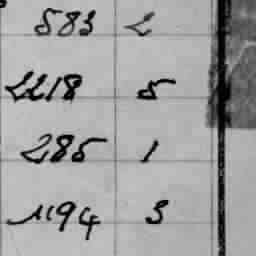 583 2
2218 5
285 1
1194 3